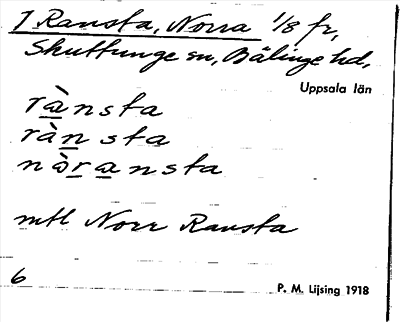 1 Ransta, Norra 1/8 fr,
Skuttunge sn, Bälinge hd,
Uppsala län
rànsta
ràn sta
nòransta
mtl Norr Ransta
6
P. M. Lijsing 1918